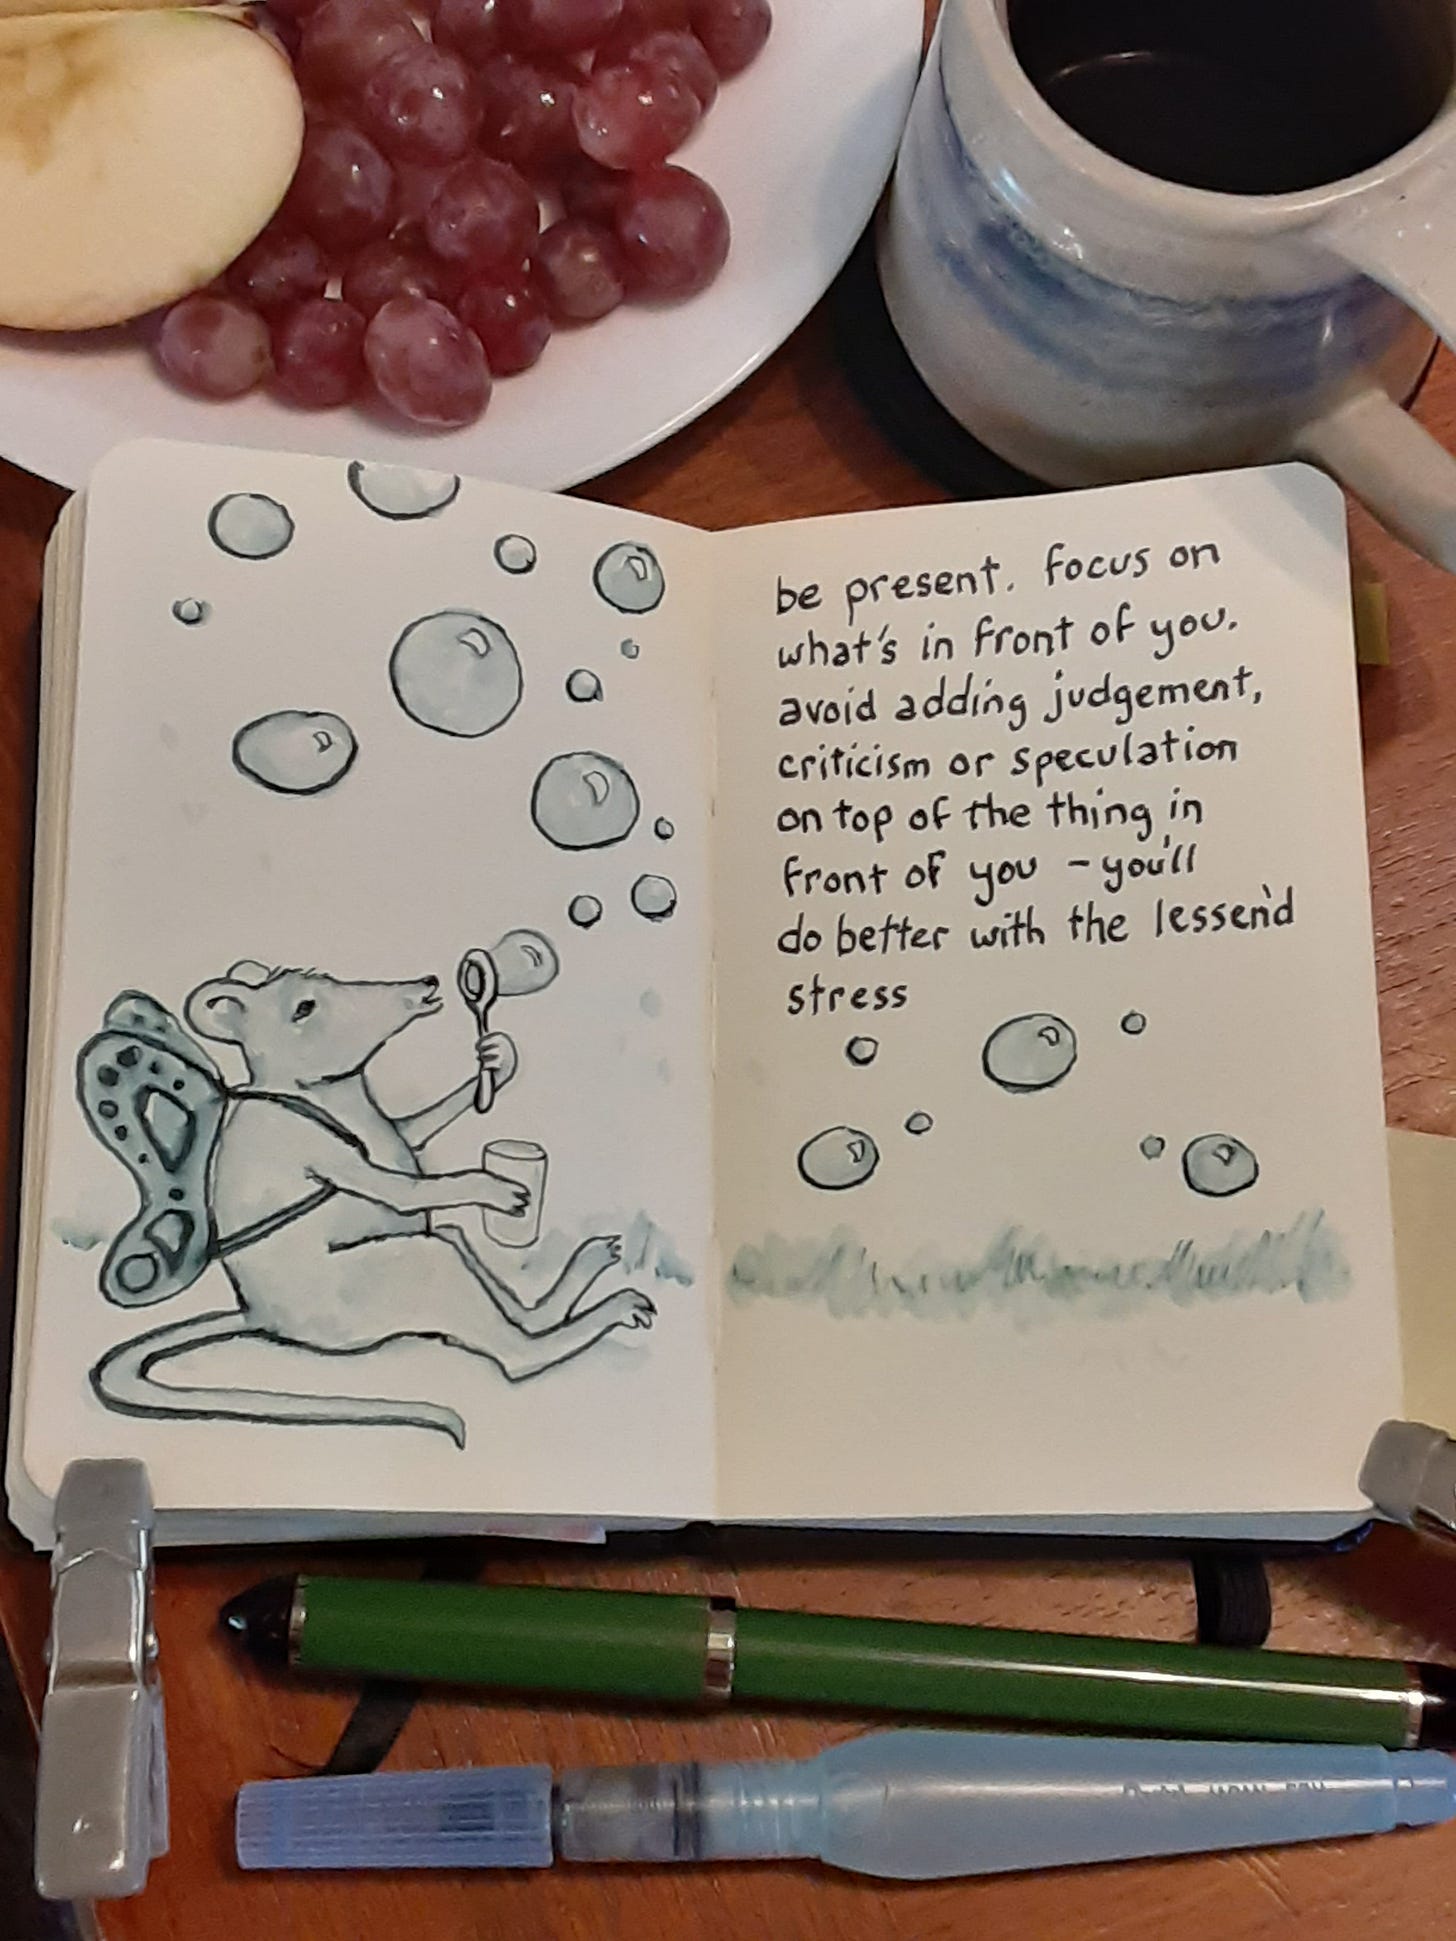 be present. focus on
what's in front of you.
avoid adding judgement,
criticism or speculation
on top of the thing in
front of you - you'll
do better with the lessen'd
stress